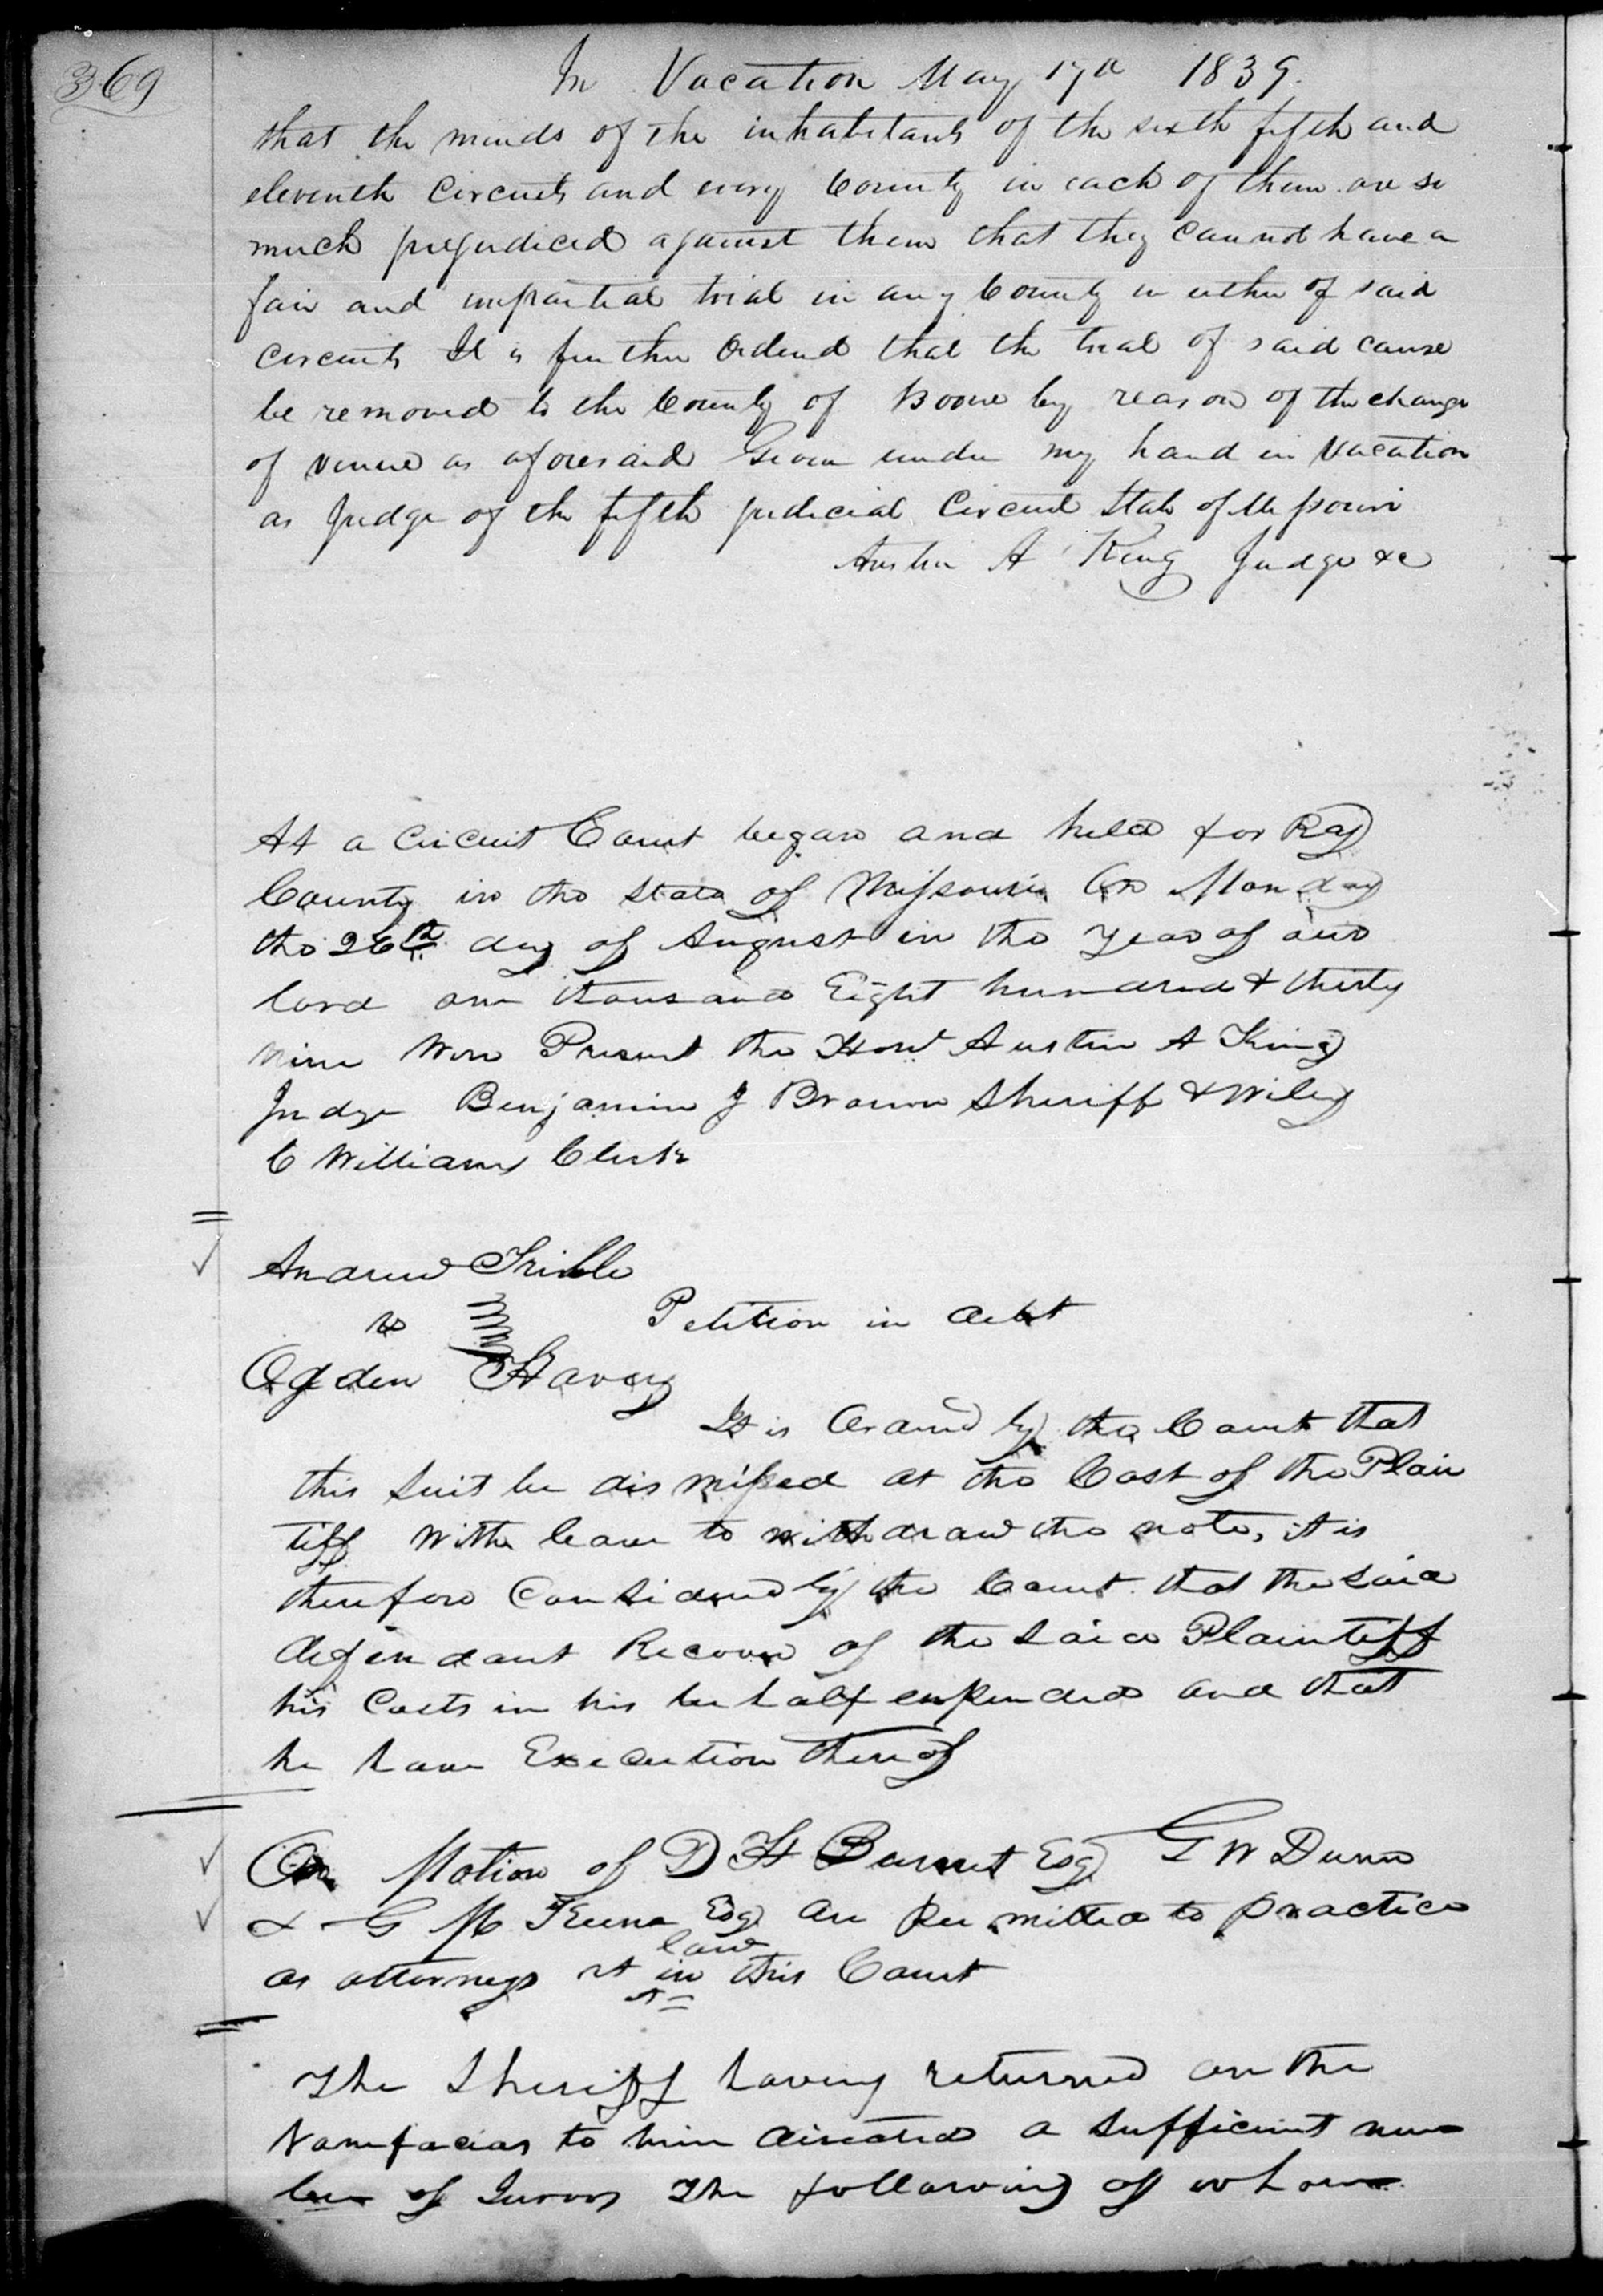 369
In Vacation May 17th 1839.
that the minds of the inhabitants of the sixth fifth and
eleventh Circuits and every County in each of them are so
much prejudiced against them that they cannot have a
fair and impartial trial in any County in either of said
circuits It is further Ordered that the trial of said cause
be removed to the County of Boone by reason of the change
of venue as aforesaid Given under my hand in Vacation
as Judge of the fifth judicial Circuit State of Missouri
Austin A King Judge &c
At a Circuit Court began and held for Ray
County in the State of Missouri On Monday
the 26th day of August in the year of our
lord one thousand Eight hundred & thirty
nine Were Present the Honl Austin A King
Judge Benjamin J Brown Sheriff & Wiley
C Williams Clerk
Andrew Tribble
vs
Petition in debt
Ogden Havey
It is Ordered by the Court that
this Suit be dismissed at the Cost of the Plain
tiff With leave to withdraw the note, it is
therefore Considered by the Court that the said
defendant Recover of the said Plaintiff
his Costs in his behalf expended and that
he have Execution thereof
On Motion of D H Esq G W Dunn
& G M Esq are permitted to practice
law
as attorneys at in this Court
The Sheriff having returned on the
to him directed a sufficient num
ber of Jurors The following of whom